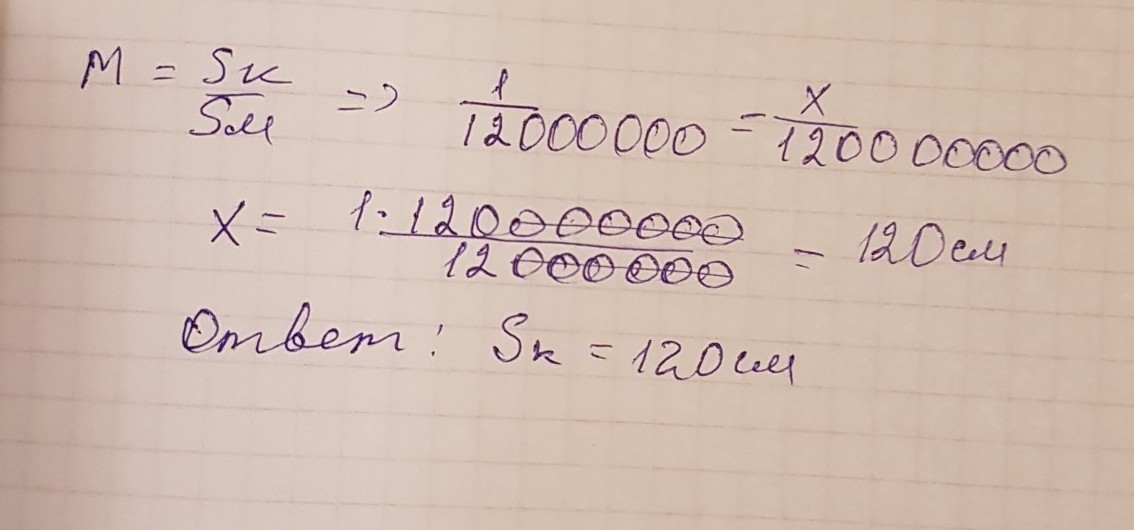 M = Sк/Sм => 1/12000000 = x/120000000
x = 1·120000000/12000000 = 120см
Ответ: Sк = 120см